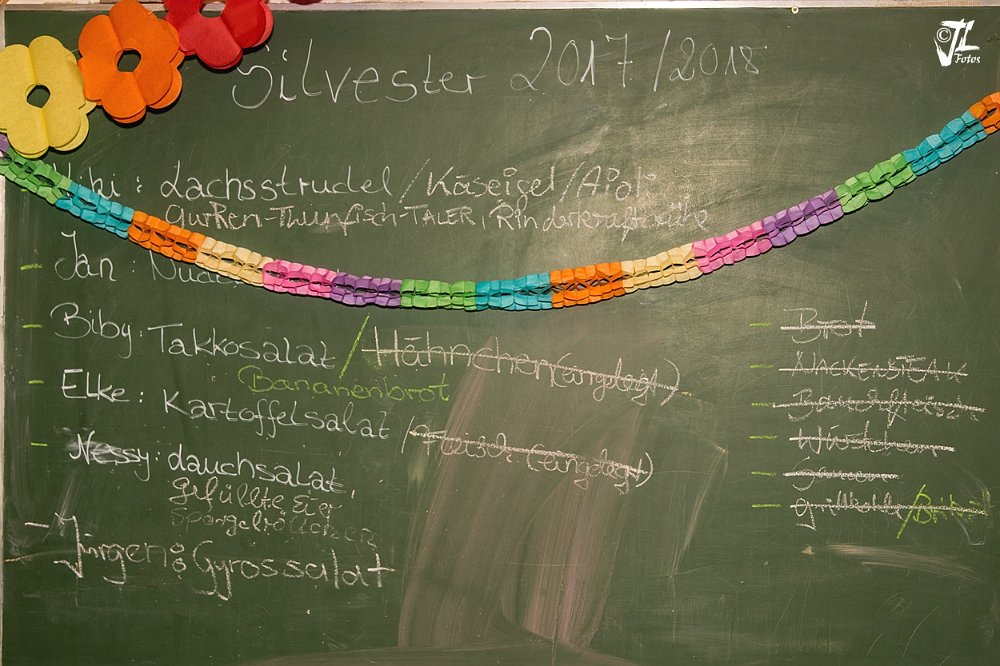 Silvester 2017/2018
© JL Fotos
: Lachsstrudel/Käseigel/Aioli
Gurken-Thunfisch-TALER,
Jan: Nude
Biby: Takkosalat / Hähnchen(eingelegt)
Bananenbrot
Elke: Kartoffelsalat / Fleisch (eingelegt)
Nessy: dauchsalat,
gefüllte Eier
Jürgen: Gyrossalat
Brot
NACKENSTEAK
Würstchen
grillkohle/